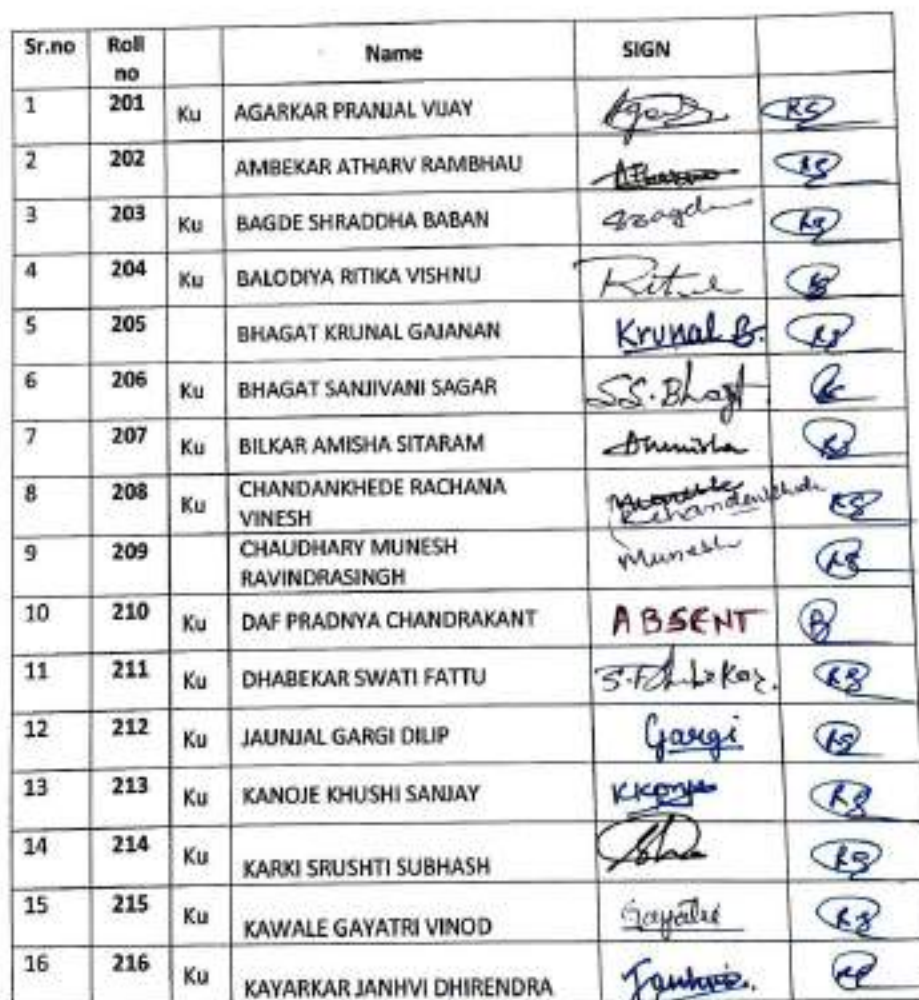 Sr.no Roll no Name SIGN
1 201 Ku AGARKAR PRANJAL VIJAY
2 202 AMBEKAR ATHARV RAMBHAU
3 203 Ku BAGDE SHRADDHA BABAN
4 204 Ku BALODIYA RITIKA VISHNU
5 205 BHAGAT KRUNAL GAJANAN Krunal B.
6 206 Ku BHAGAT SANJIVANI SAGAR SS.Bhagt
7 207 Ku BILKAR AMISHA SITARAM
8 208 Ku CHANDANKHEDE RACHANA
VINESH
9 209 CHAUDHARY MUNESH Munesh
RAVINDRASINGH
10 210 Ku DAF PRADNYA CHANDRAKANT ABSENT
11 211 Ku DHABEKAR SWATI FATTU
12 212 Ku JAUNJAL GARGI DILIP Gargi
13 213 Ku KANOJE KHUSHI SANJAY
14 214 Ku KARKI SRUSHTI SUBHASH
15 215 Ku KAWALE GAYATRI VINOD Gayatri
16 216 Ku KAYARKAR JANHVI DHIRENDRA Janhvi.